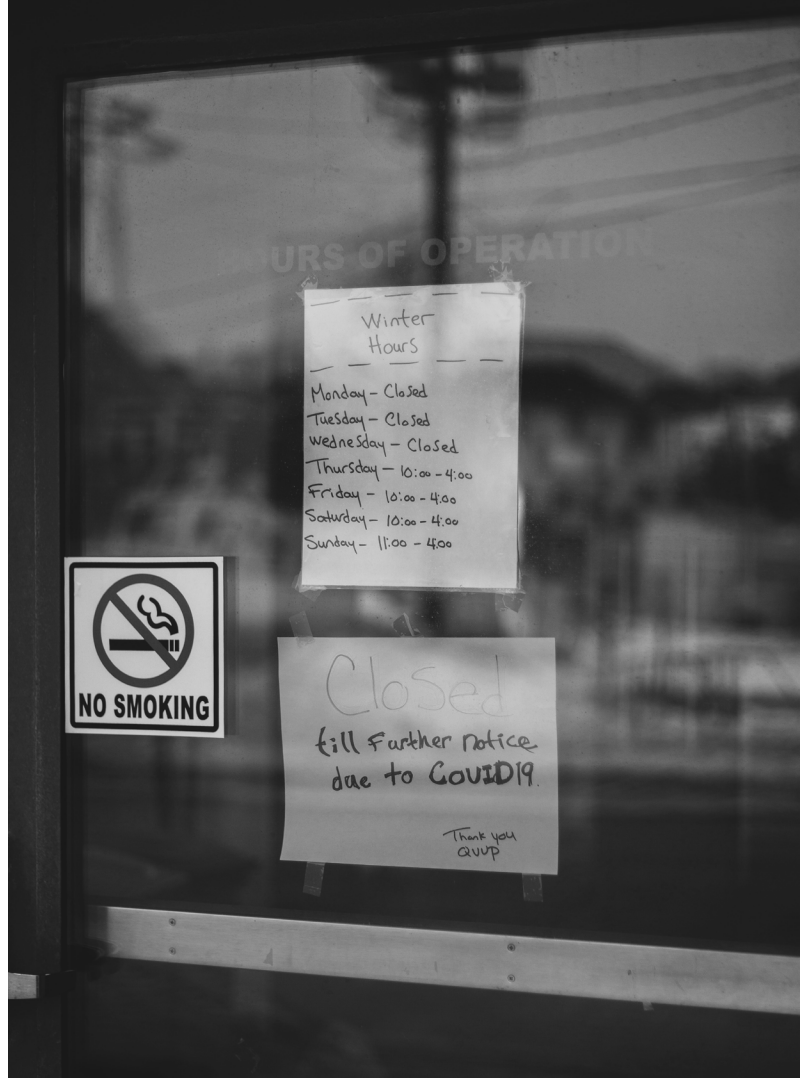 HOURS OF OPERATION
Winter
Hours
Monday - Closed
Tuesday - Closed
Wednesday - Closed
Thursday - 10:00 - 4:00
Friday - 10:00 - 4:00
Saturday - 10:00 - 4:00
Sunday - 11:00 - 4:00
NO SMOKING
Closed
till Farther notice
due to COVID19.
Thank you
QVVP